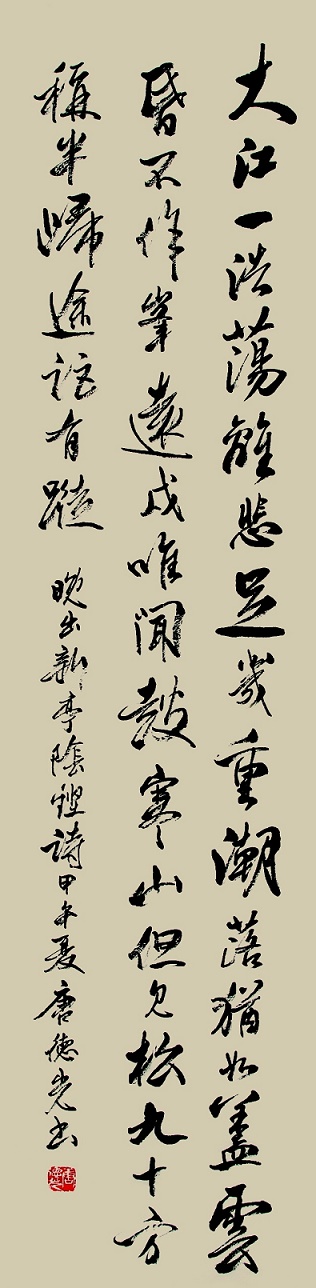 大江一浩蕩離悲足幾重潮落猶如蓋雲
昏不作峯遠戍唯聞鼓寒山但見松九十方
稱半歸途詎有蹤
晚出新亭陰鏗詩甲午夏唐德光書